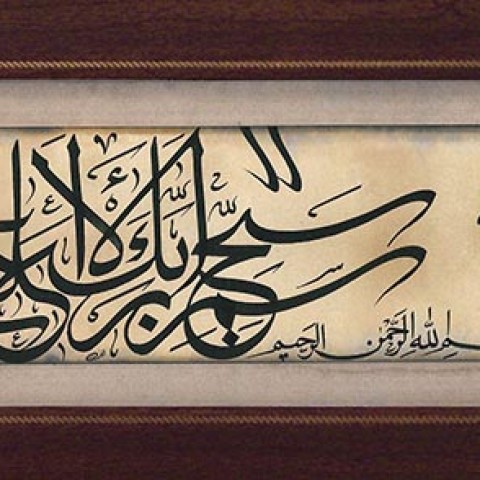 الله الرحمن الرحيم
سبح اسم ربك الأعلى